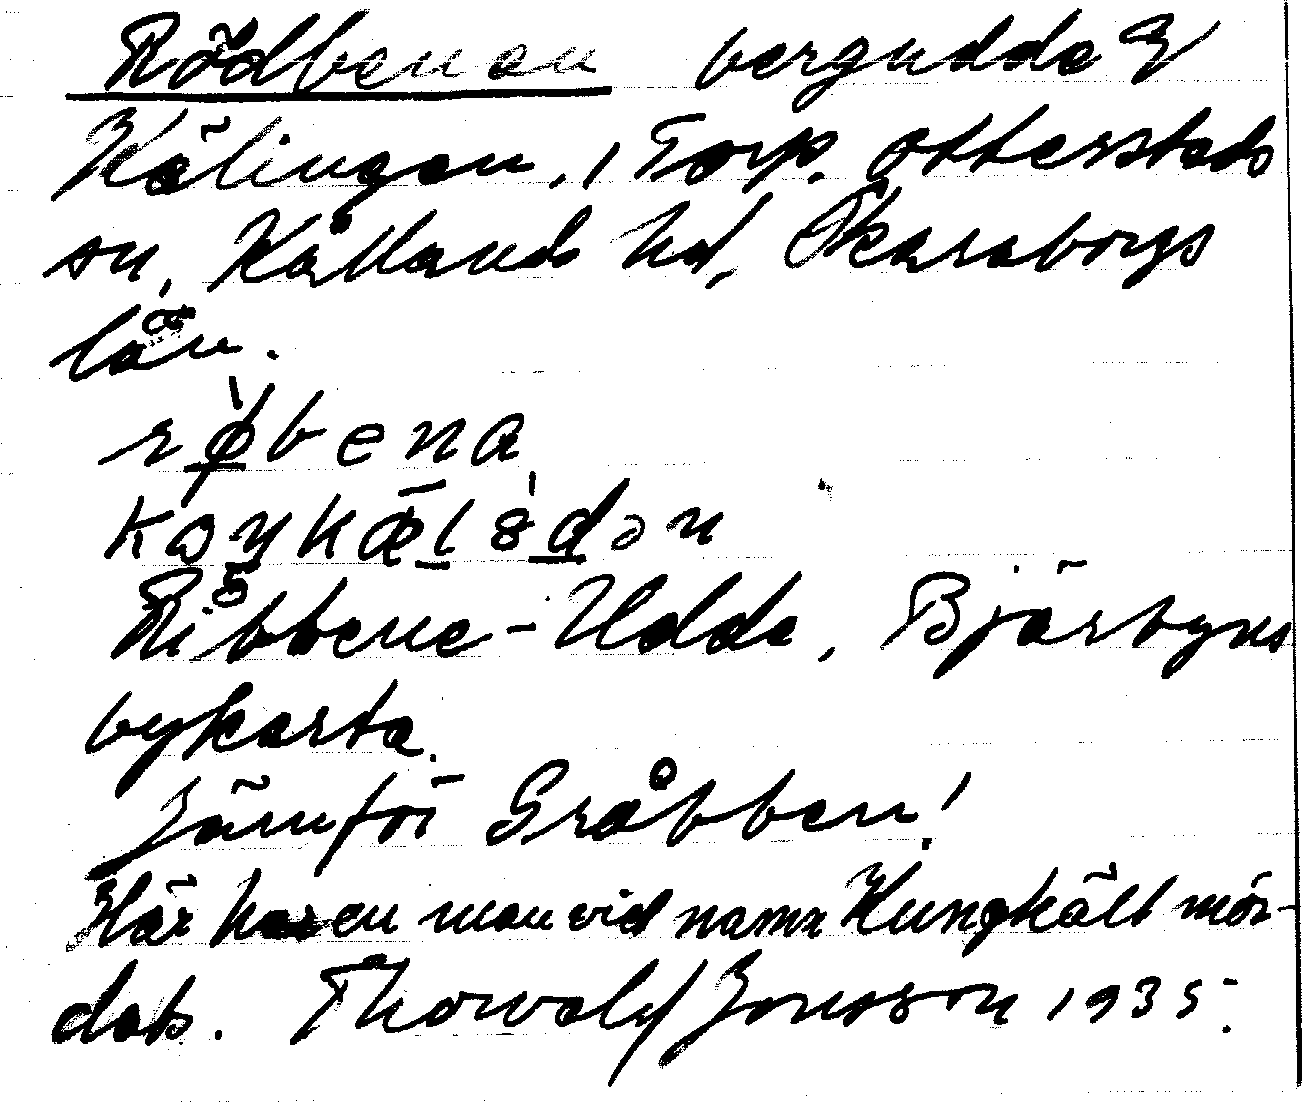 Rödbenen bergudde i
Kålingen, i Torp. Otterstads
sn, Kållands hd, Skaraborgs
län.
røbena
koŋkælsødən
Råbbene-Udde, Bjärbyns
bykarta.
Jämför Gråbben!
Här har en man vid namn Kungkäll mör-
dats. Thorvald Jonsson 1935.